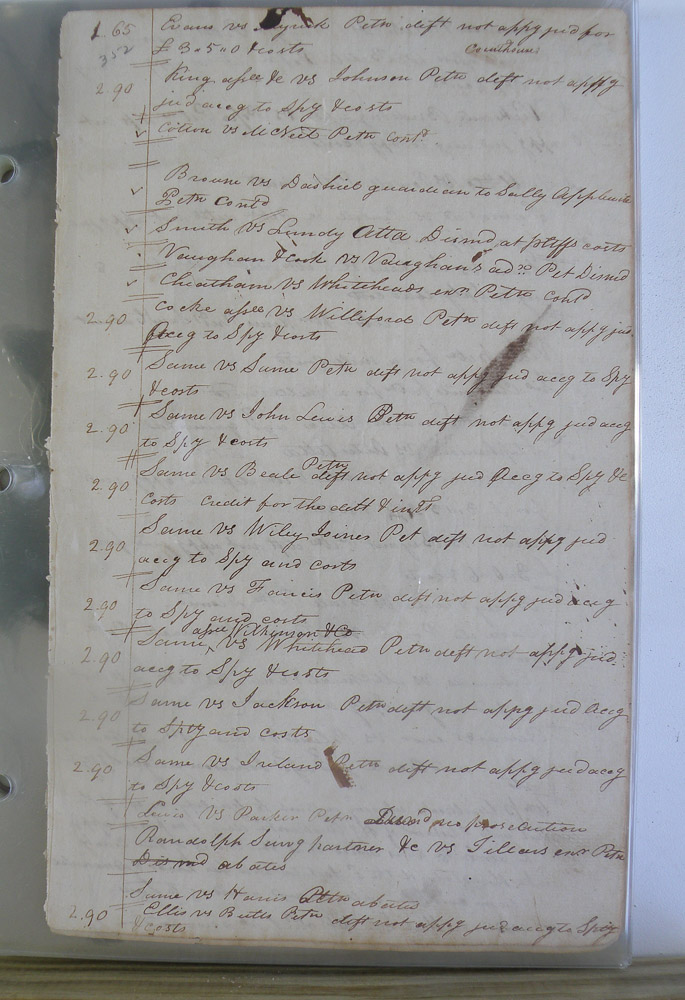 1.65 Evans vs Myrick Petn deft not appg jud for
352 £ 3"5"0 & costs
2.90 King assee &c vs Johnson Petn deft not appg
jud accg to Spy & costs
Cotton vs McNeil Petn contd
Browne vs Dashiel guardian to Sally Applewhite
Petn contd
Smith vs Lundy Atta Dismd at pltffs costs
Vaughan & Cook vs Vaughan's ad'rs Pet Dismd
Cheatham vs Whiteheads exr Petn contd
2.90 Cocke assee vs Williford Petn deft not appg jud
accg to Spy & costs
2.90 Same vs Same Petn deft not appg jud accg to Spy
& costs
2.90 Same vs John Lewis Petn deft not appg jud accg
to Spy & costs
2.90 Same vs Beale Petn deft not appg jud accg to Spy &c
costs credit for the debt & intst
2.90 Same vs Wiley Joines Pet deft not appg jud
accg to Spy and costs
2.90 Same vs Francis Petn deft not appg jud accg
to Spy and costs
assee Wilkinson & Co
2.90 Same vs Whitehead Petn deft not appg jud
accg to Spy & costs
2.90 Same vs Jackson Petn deft not appg jud accg
to Spy and costs
2.90 Same vs Ireland Petn deft not appg jud accg
to Spy & costs
Lewis vs Parker Petn Dismd no prosecution
Randolph Survg partner &c vs Exr Petn
Dismd abates
Same vs Harris Petn abates
2.90 Ellis vs Butts Petn deft not appg jud accg to Spy
& costs